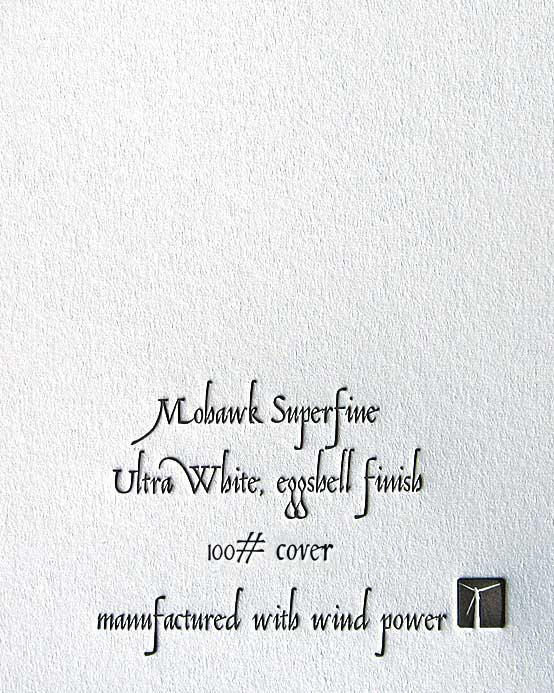 Mohawk Superfine
Ultra White, eggshell finish
100# cover
manufactured with wind power